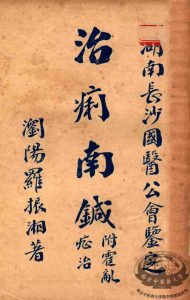 湖南長沙國醫公會鑒定
治痢南鍼
附霍亂
症治
瀏陽羅振湘著